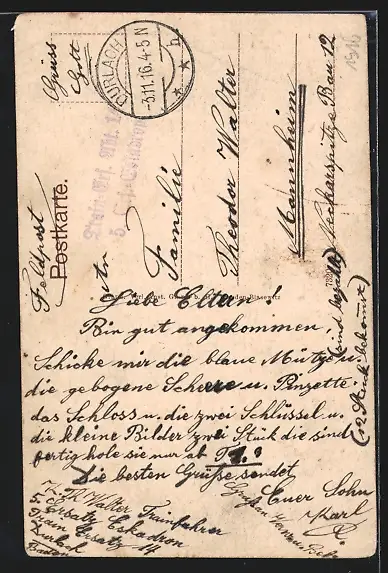 Grüss
Gott
DURLACH
-3.11.16.4-5N
b
1916
Feldpost
Postkarte.
An
Familie
Theodor Walter
Mannheim
Neckarspitze Bau 12
Liebe Eltern!
Bin gut angekommen,
Schicke mir die blaue Mütze u.
die gebogene Schere u. Pinzette
das Schloss u. die zwei Schlüssel u.
die kleine Bilder zwei Stück die sind
fertig hole sie nur ab
(12 Stück bekommt)
(sind bezahlt)
Die besten Grüße sendet
Euer Sohn
Karl
Walter Trainfahrer
5. Ersatz Eskadron
Train Ersatz 14
Durlach
Baden